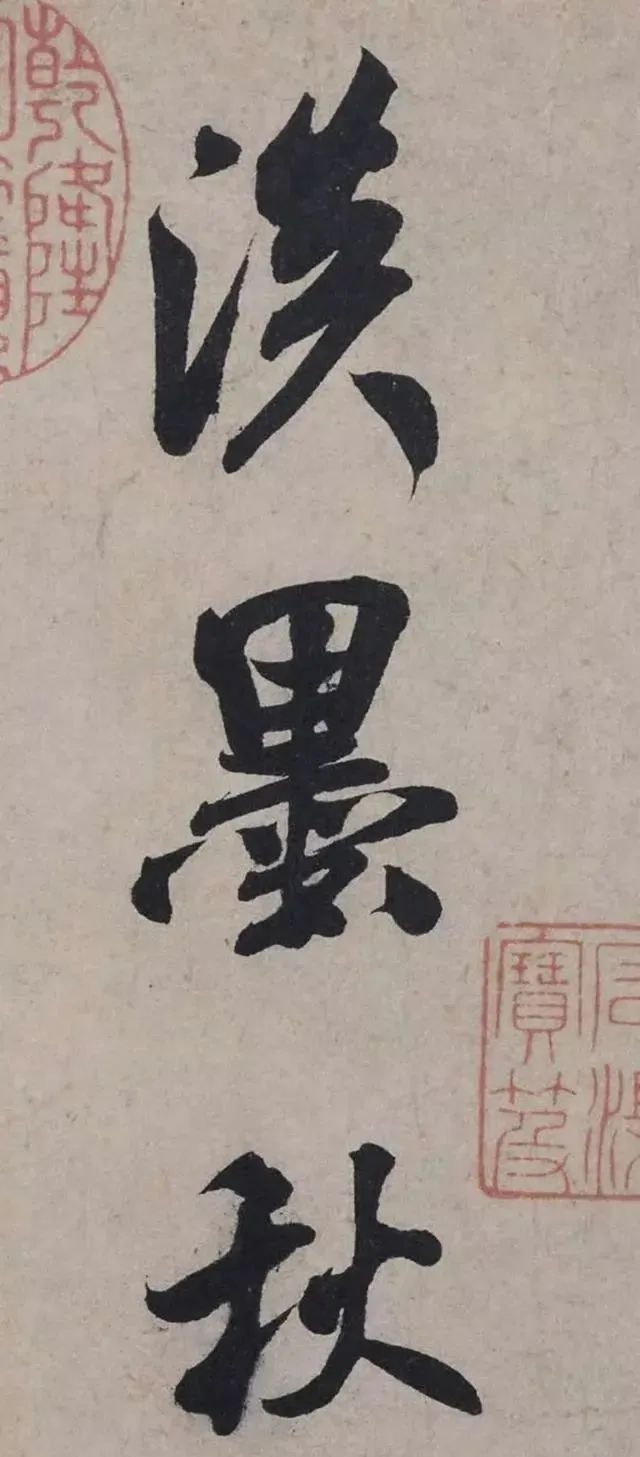 淡墨秋
乾隆
石渠
寶笈